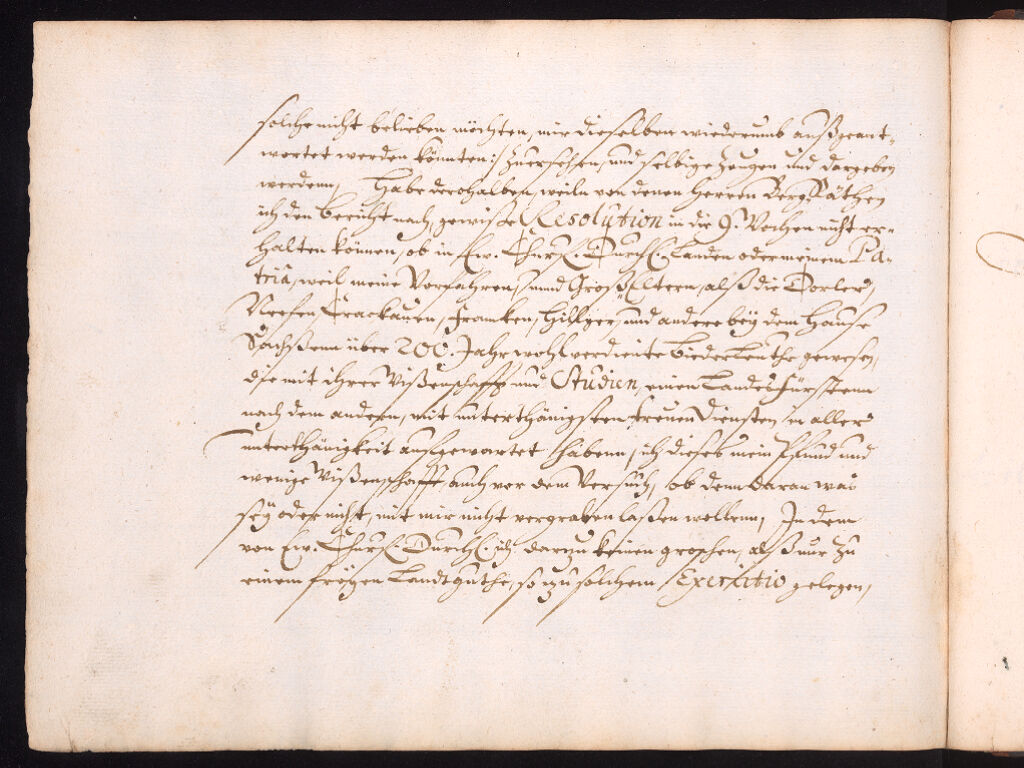 solche nicht belieben möchten, mir dieselben wiederumb außgeant-
wortet werden könnten :/ zuersehen, und selbige zeugen und dargeben
werdenn, Habe derohalben, weiln von denen Herren Berg Räthen
ich den bericht nach, gewiße Resolution in die 9. Wochen nicht er-
halten können, ob in Ew. Churf. Durchl. Landen oder meinem Pa-
tria, weil meine Vorfahren, und GroßEltern, alß die Dorler,
Neefen, Crackauen, Francken, Hillger, und andere bey dem Hause
Sachßenn über 200. Jahr wohl verdiente biederleuthe gewesen,
die mit ihrer Wißenschafft und Studien, einen Landesfürstenn
nach dem andern, mit unterthänigsten treuen Diensten, in aller
unterthänigkeit aufgewartet habenn, ich dieses mein Pfund und
wenige Wißenschafft auch vor dem Versuch, ob denn daran was
sey oder nicht, mit mir nicht vergraben laßen wollenn, In dem
von Ew. Churf. Durchl. ich darzu keinen groschen, alß nur zu
einem freyen Landtguthe, so zu solchem Exercitio gelegen,